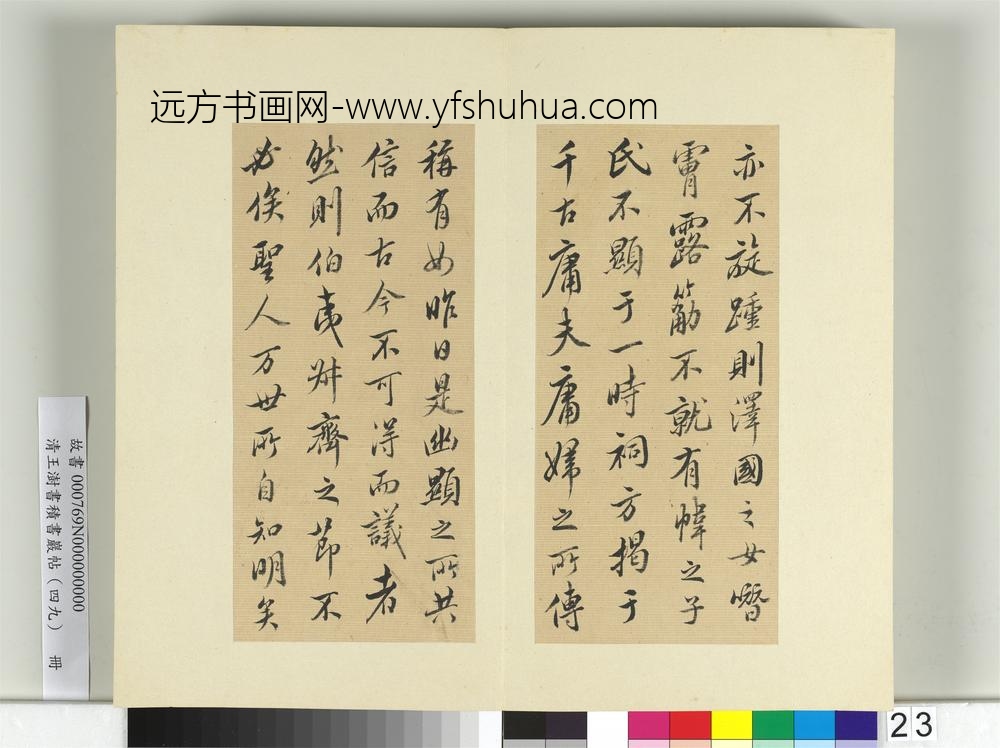 远方书画网-www.yfshuhua.com
亦不旋踵則澤國之女暋
霄露筋不就有幃之子
氏不顯于一時祠方揭于
千古庸夫庸婦之所傳
稱有如昨日是幽顯之所共
信而古今不可得而議者
然則伯夷叔齊之節不
必俟聖人万世所自知明矣
故書 000769N000000000
清王澍書積書巖帖（四九） 冊
23